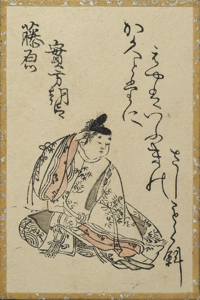 藤原
實方朝臣
かくとたに
えやはいふきの
さしも草